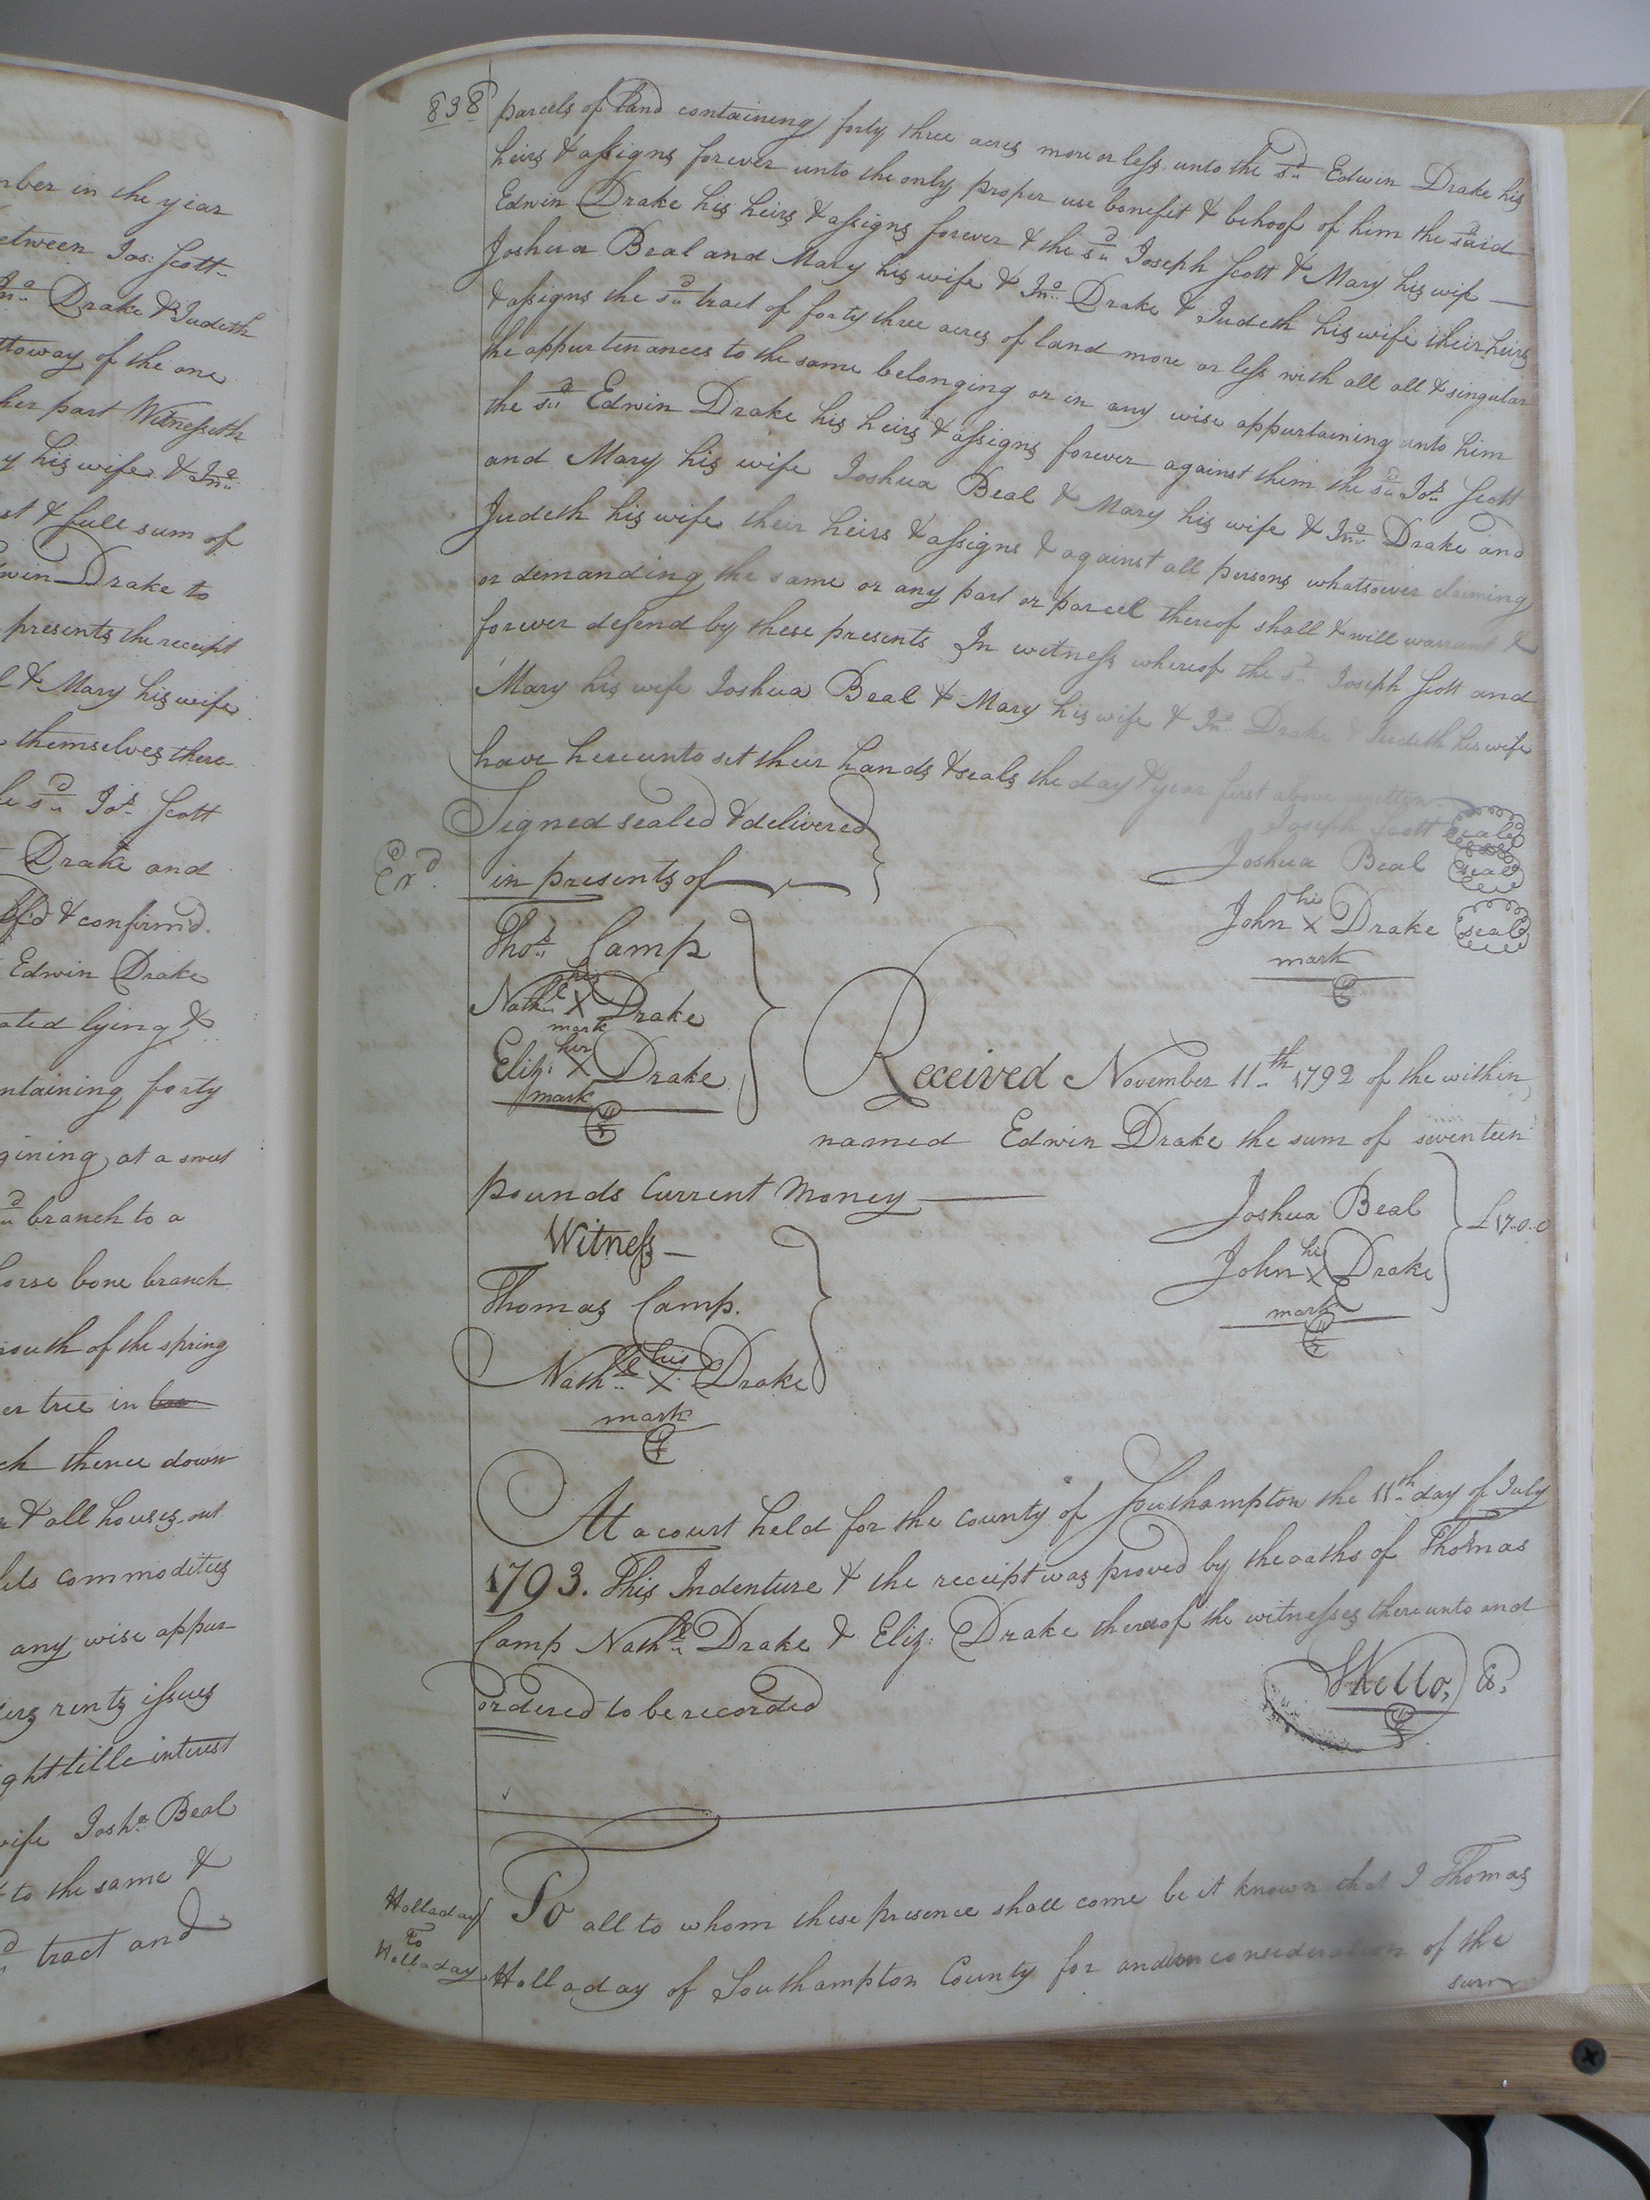 mber in the year
etween Jos: Scott
Jnº Drake & Judeth
ttoway of the one
her part Witnesseth
y his wife & Jnº
st & full sum of
win Drake to
presents the receipt
l & Mary his wife
themselves there-
he sd Jos Scott
Drake and
& confirm'd.
Edwin Drake
ated lying &
ntaining forty
gining at a sweet
d branch to a
horse bone branch
outh of the spring
er tree in
ch thence down
& all houses out
commodities
any wise appur-
rents issues
ght title interest
wife Josha Beal
to the same &
d tract and
838
parcels of land containing forty three acres more or less unto the sd Edwin Drake his
heirs & assigns forever unto the only proper use benefit & behoof of him the said
Edwin Drake his heirs & assigns forever & the sd Joseph Scott & Mary his wife
Joshua Beal and Mary his wife & Jnº Drake & Judeth his wife their heirs
& assigns the sd tract of forty three acres of land more or less with all all & singular
the appurtenances to the same belonging or in any wise appurtaining unto him
the sd Edwin Drake his heirs & assigns forever against them the sd Jos Scott
and Mary his wife Joshua Beal & Mary his wife & Jnº Drake and
Judeth his wife their heirs & assigns & against all persons whatsoever claiming
or demanding the same or any part or parcel thereof shall & will warrant &
forever defend by these presents In witness whereof the sd Joseph Scott and
Mary his wife Joshua Beal & Mary his wife & Jnº Drake & Judeth his wife
have hereunto set their hands & seals the day & year first above written
Signed sealed & delivered
in presents of
Exd.
Joseph Scott seal
Joshua Beal seal
his
John X Drake seal
mark
Thos Camp
his
Nathl X Drake
mark
her
Eliz: X Drake
mark
Received November 11th 1792 of the within
named Edwin Drake the sum of seventeen
pounds Current Money
Joshua Beal
£17.0.0
his
John X Drake
mark
Witness
Thomas Camp.
his
Nathl X Drake
mark
At a court held for the county of Southampton the 11th day of July
1793. This Indenture & the receipt was proved by the oaths of Thomas
Camp Nathl Drake & Eliz: Drake thereof the witnesses thereunto and
ordered to be recorded
SKello, C.
Holladay
To
Holladay
To all to whom these presence shall come be it known that I Thomas
Holladay of Southampton County for and in consideration of the
sum